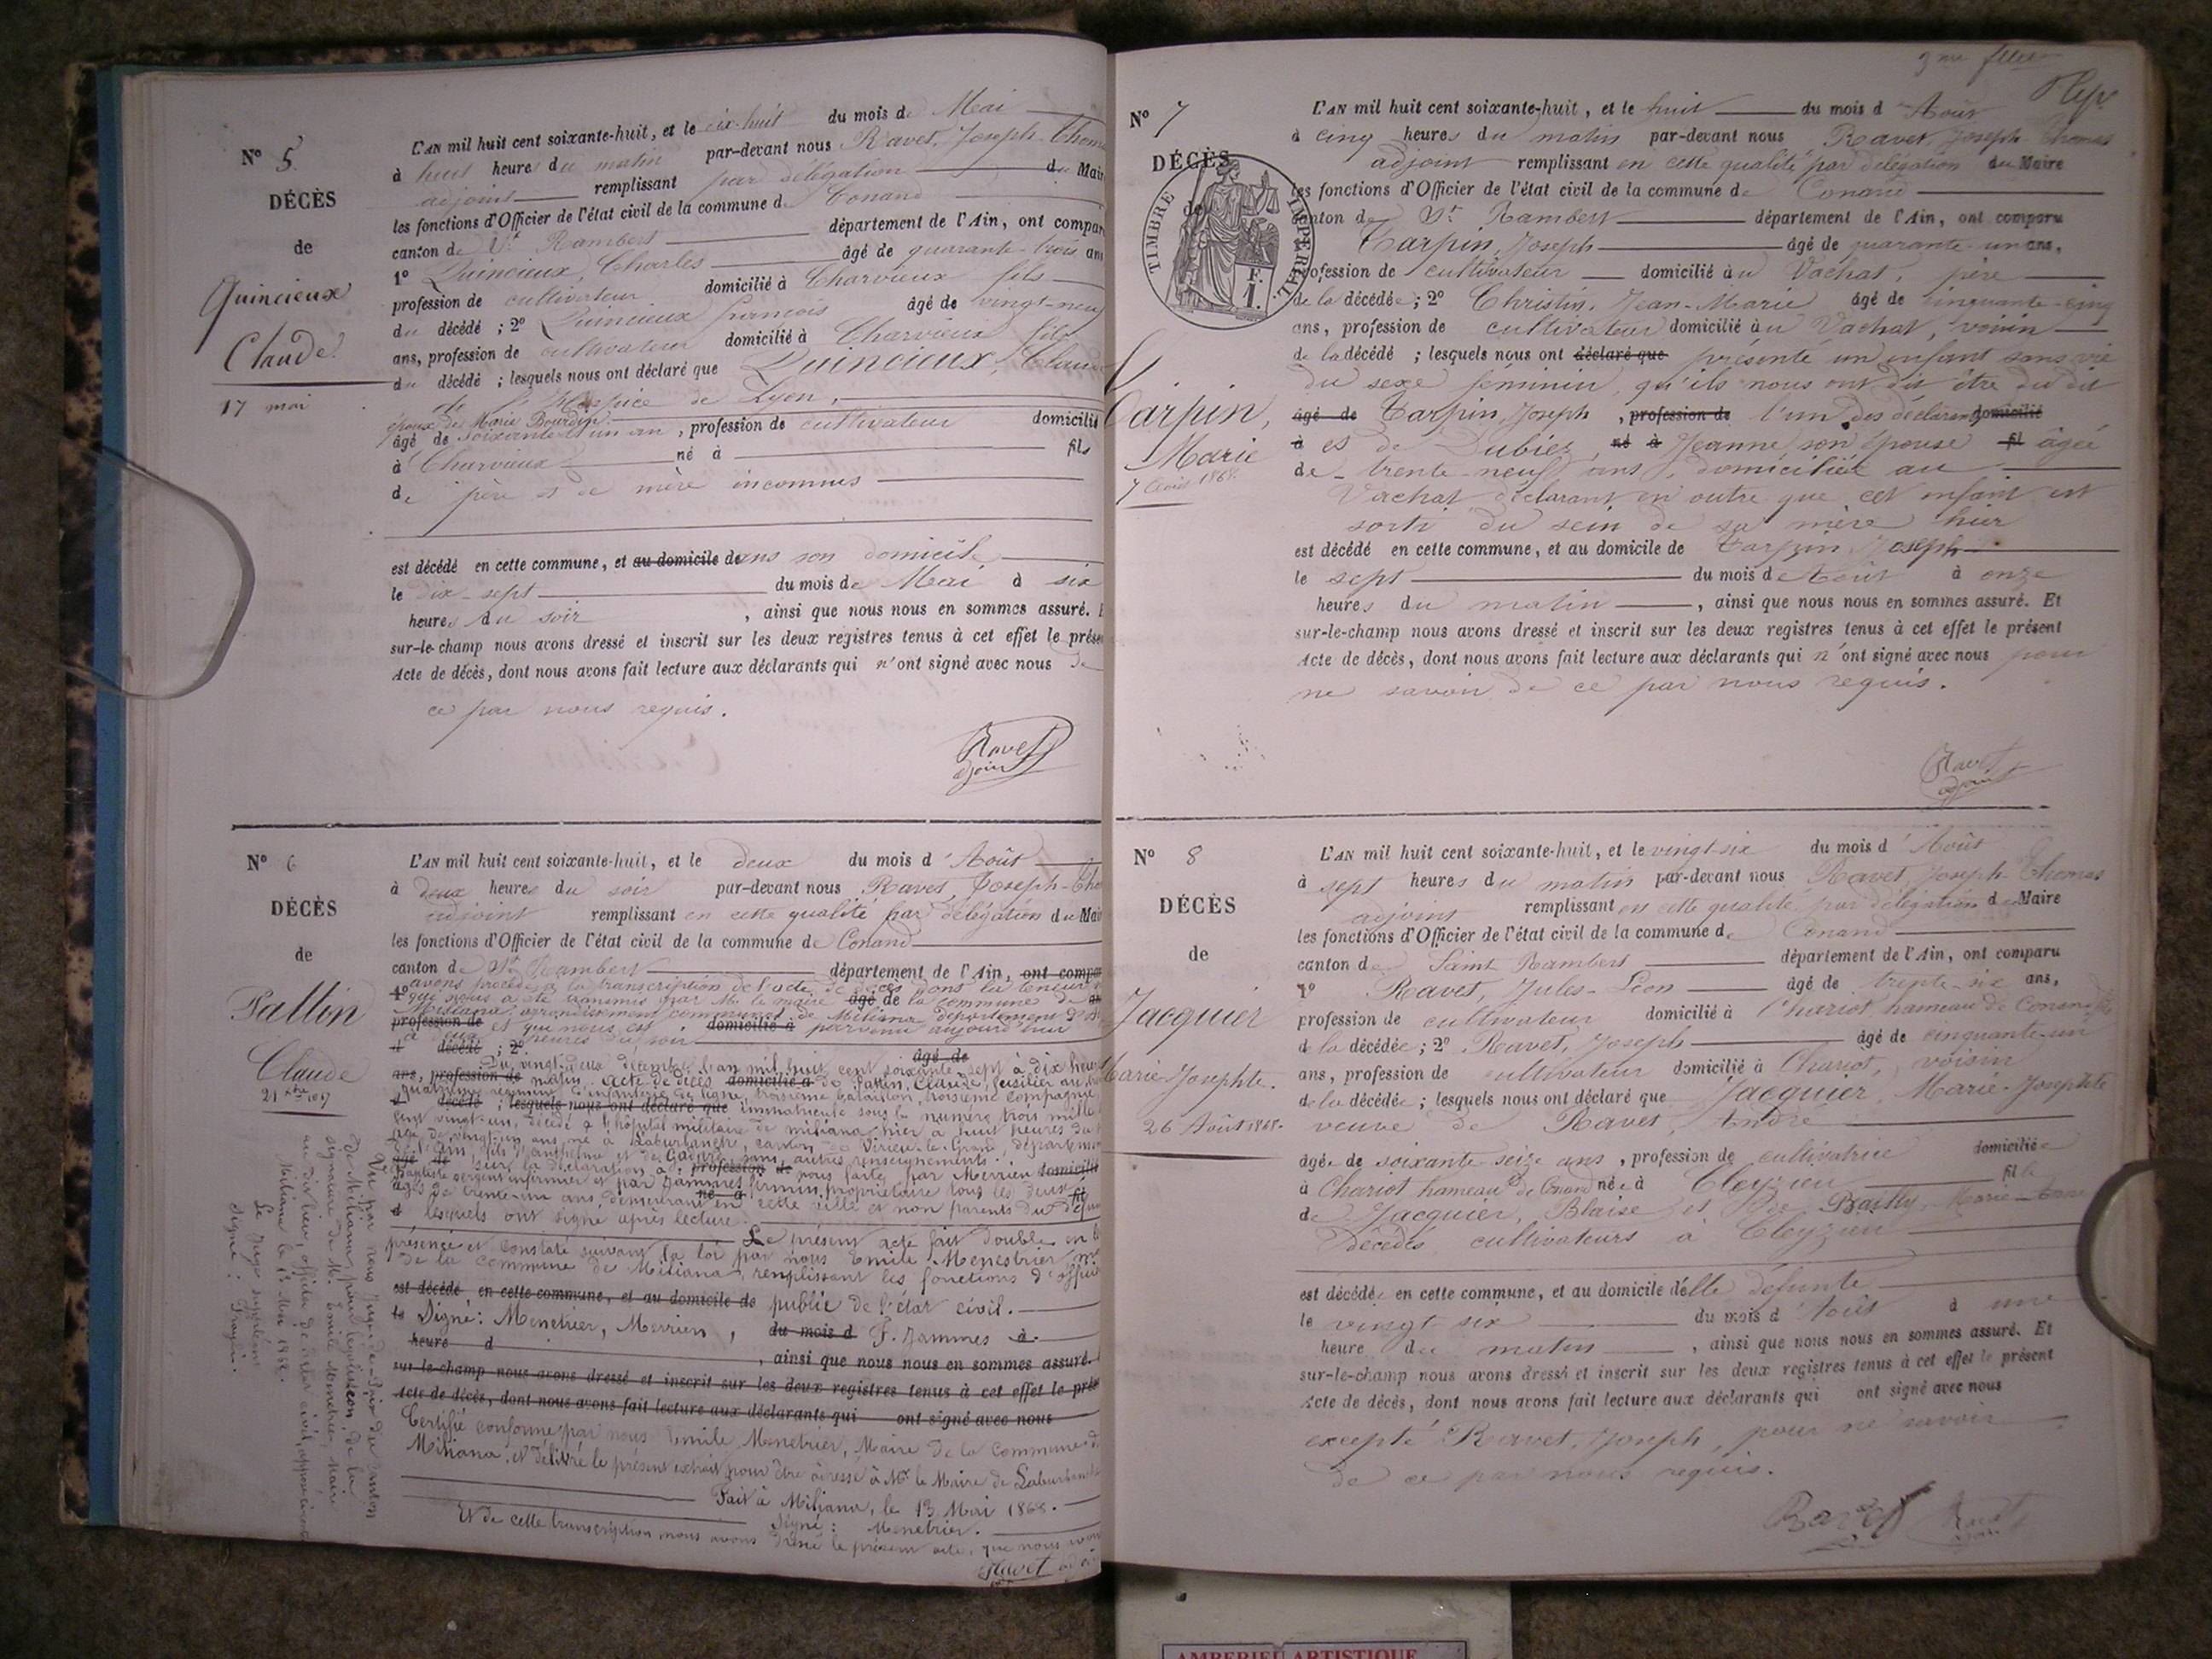 N° 5.
DÉCÈS
de
Quincieux
Claude.
17 mai
L'AN mil huit cent soixante-huit, et le dix-huit du mois de Mai
à huit heures du matin par-devant nous Ravet, Joseph-Thom
adjoint remplissant par délégation du Mair
les fonctions d'Officier de l'état civil de la commune de Conand
canton de St Rambert département de l'Ain, ont compar
1° Quincieux, Charles âgé de quarante-trois an
profession de cultivateur domicilié à Charvieux fils
du décédé ; 2° Quincieux françois âgé de vingt-neuf
ans, profession de cultivateur domicilié à Charvieux fils
du décédé ; lesquels nous ont déclaré que Quincieux, Claud
de l'Hospice de Lyon,
époux de Marie Bourdin
âgé de soixante et un an, profession de cultivateur domicilié
à Charvieux né à fils
de père et de mère inconnus
est décédé en cette commune, et au domicile dans son domicile
le dix-sept du mois de Mai à six
heures du soir, ainsi que nous nous en sommes assuré. E
sur-le-champ nous avons dressé et inscrit sur les deux registres tenus à cet effet le prése
Acte de décès, dont nous avons fait lecture aux déclarants qui n'ont signé avec nous de
ce par nous requis.
Ravet
adjoint
N° 6
DÉCÈS
de
Pallin
Claude
21 Xbre 1867
L'AN mil huit cent soixante-huit, et le deux du mois d'Août
à deux heures du soir par-devant nous Ravet, Joseph-Tho
adjoint remplissant en cette qualité par délégation du Mair
les fonctions d'Officier de l'état civil de la commune de Conand
canton de St Rambert département de l'Ain, ont compar
avons procédé à la transcription de l'acte de décès dont la teneur
1° que nous a été transmis par Mr le maire âgé de la commune de
Miliana, arrondissement communal de Miliana département d'
profession de et qui nous est domicilié à parvenu aujourd'hui
à deux heures du soir
d décédé ; 2° âgé de
Du vingt-deux décembre l'an mil huit cent soixante-sept à dix heures
ans, profession de matin. Acte de décès domicilié à de Pallin, Claude, fusilier au
quatrième régiment d'infanterie de ligne, troisième bataillon, troisième compagnie
d décédé ; lesquels nous ont déclaré que immatriculé sous le numéro trois mille
cent vingt-un, décédé à l'hôpital militaire de miliana hier à huit heures du
âgé de vingt-un ans, né à Laburbanche, canton de Virieu-le-Grand, départemen
de l'Ain, fils d'anthelme et de sans autres renseignements.
âgé de Sur la déclaration à profession de nous faite par Merrien domicilié
Baptiste sergent infirmier et par Jammes Firmin, propriétaire tous les deux
âgés de trente-un ans, demeurant né à en cette ville et non parents du défun
d lesquels ont signé après lecture. Le présent acte fait double en
présence et constaté suivant la loi par nous Emile Menestrier, m
de la commune de Miliana, remplissant les fonctions d'offici
est décédé en cette commune, et au domicile de public de l'état civil.
le Signé: Menetrier, Merrien, du mois d F. Jammes à
heure d, ainsi que nous nous en sommes assuré.
sur-le-champ nous avons dressé et inscrit sur les deux registres tenus à cet effet le prése
Acte de décès, dont nous avons fait lecture aux déclarants qui ont signé avec nous
Certifié conforme par nous Emile Menetrier, Maire de la Commune d
Miliana, et délivré le présent extrait pour être adressé à Mr le Maire de Laburbanche
Fait à Miliana, le 13 Mai 1868.
Signé: Menetrier.
Et de cette transcription nous avons dressé le présent acte, que nous avon
Ravet adj
Vu par nous Juge-de-Paix du Canton
de Miliana, pour légalisation, de la
signature de Mr Emile Menetrier, Maire
au dit lieu, officier de l'état civil, apposée ci-contre
Miliana le 13 Mai 1868.
Le Juge suppléant
Signé:
3me feuillet
N° 7
DÉCÈS
de
TIMBRE IMPÉRIAL
F. 1.
Tarpin,
Marie
7 Août 1868.
L'AN mil huit cent soixante-huit, et le huit du mois d'Août
à cinq heures du matin par-devant nous Ravet, Joseph Thomas
adjoint remplissant en cette qualité par délégation du Maire
les fonctions d'Officier de l'état civil de la commune de Conand
canton de St Rambert département de l'Ain, ont comparu
Tarpin, Joseph âgé de quarante-un ans,
profession de cultivateur domicilié au Vachat, père
de la décédée ; 2° Christin, Jean-Marie âgé de cinquante-cinq
ans, profession de cultivateur domicilié au Vachat, voisin
de la décédé ; lesquels nous ont déclaré que présenté un enfant sans vie
du sexe féminin, qu'ils nous ont dit être du dit
âgé de Tarpin, Joseph, profession de l'un des déclarants domicilié
à et de Dubiez, né à Jeanne, son épouse fil âgée
de trente-neuf ans, domiciliée au
Vachat déclarant en outre que cet enfant est
sorti du sein de sa mère hier
est décédé en cette commune, et au domicile de Tarpin, Joseph
le sept du mois de Août à onze
heures du matin, ainsi que nous nous en sommes assuré. Et
sur-le-champ nous avons dressé et inscrit sur les deux registres tenus à cet effet le présent
Acte de décès, dont nous avons fait lecture aux déclarants qui n'ont signé avec nous pour
ne savoir de ce par nous requis.
Ravet
adjoint
N° 8
DÉCÈS
de
Jacquier
Marie-Josephte.
26 Août 1868.
L'AN mil huit cent soixante-huit, et le vingt-six du mois d'Août
à sept heures du matin par-devant nous Ravet, Joseph-Thomas
adjoint remplissant en cette qualité par délégation du Maire
les fonctions d'Officier de l'état civil de la commune de Conand
canton de Saint Rambert département de l'Ain, ont comparu
1° Ravet, Jules-Léon âgé de trente-six ans,
profession de cultivateur domicilié à Chariot hameau de Conand fils
de la décédée ; 2° Ravet, Joseph âgé de cinquante-un
ans, profession de cultivateur domicilié à Chariot, voisin
de la décédée ; lesquels nous ont déclaré que Jacquier, Marie-Josephte
veuve de Ravet, André
âgée de soixante-seize ans, profession de cultivatrice domiciliée
à Chariot hameau de Conand née à Cleyzieu fille
de Jacquier, Blaise et de Bailly, Marie-Anne
décédés cultivateurs à Cleyzieu
est décédée en cette commune, et au domicile d'elle défunte
le vingt six du mois d'Août à une
heure du matin, ainsi que nous nous en sommes assuré. Et
sur-le-champ nous avons dressé et inscrit sur les deux registres tenus à cet effet le présent
Acte de décès, dont nous avons fait lecture aux déclarants qui ont signé avec nous
excepté Ravet, Joseph, pour ne savoir
de ce par nous requis.
Ravet Ravet
AMBERIEU ARTISTIQUE